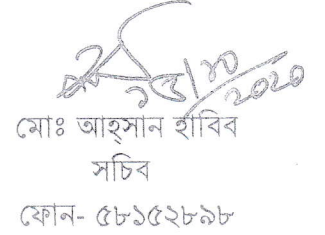 ১৫/১০/২০২০
মোঃ আহ্সান হাবিব
সচিব
ফোন- ৫৮১৫২৮৯৮